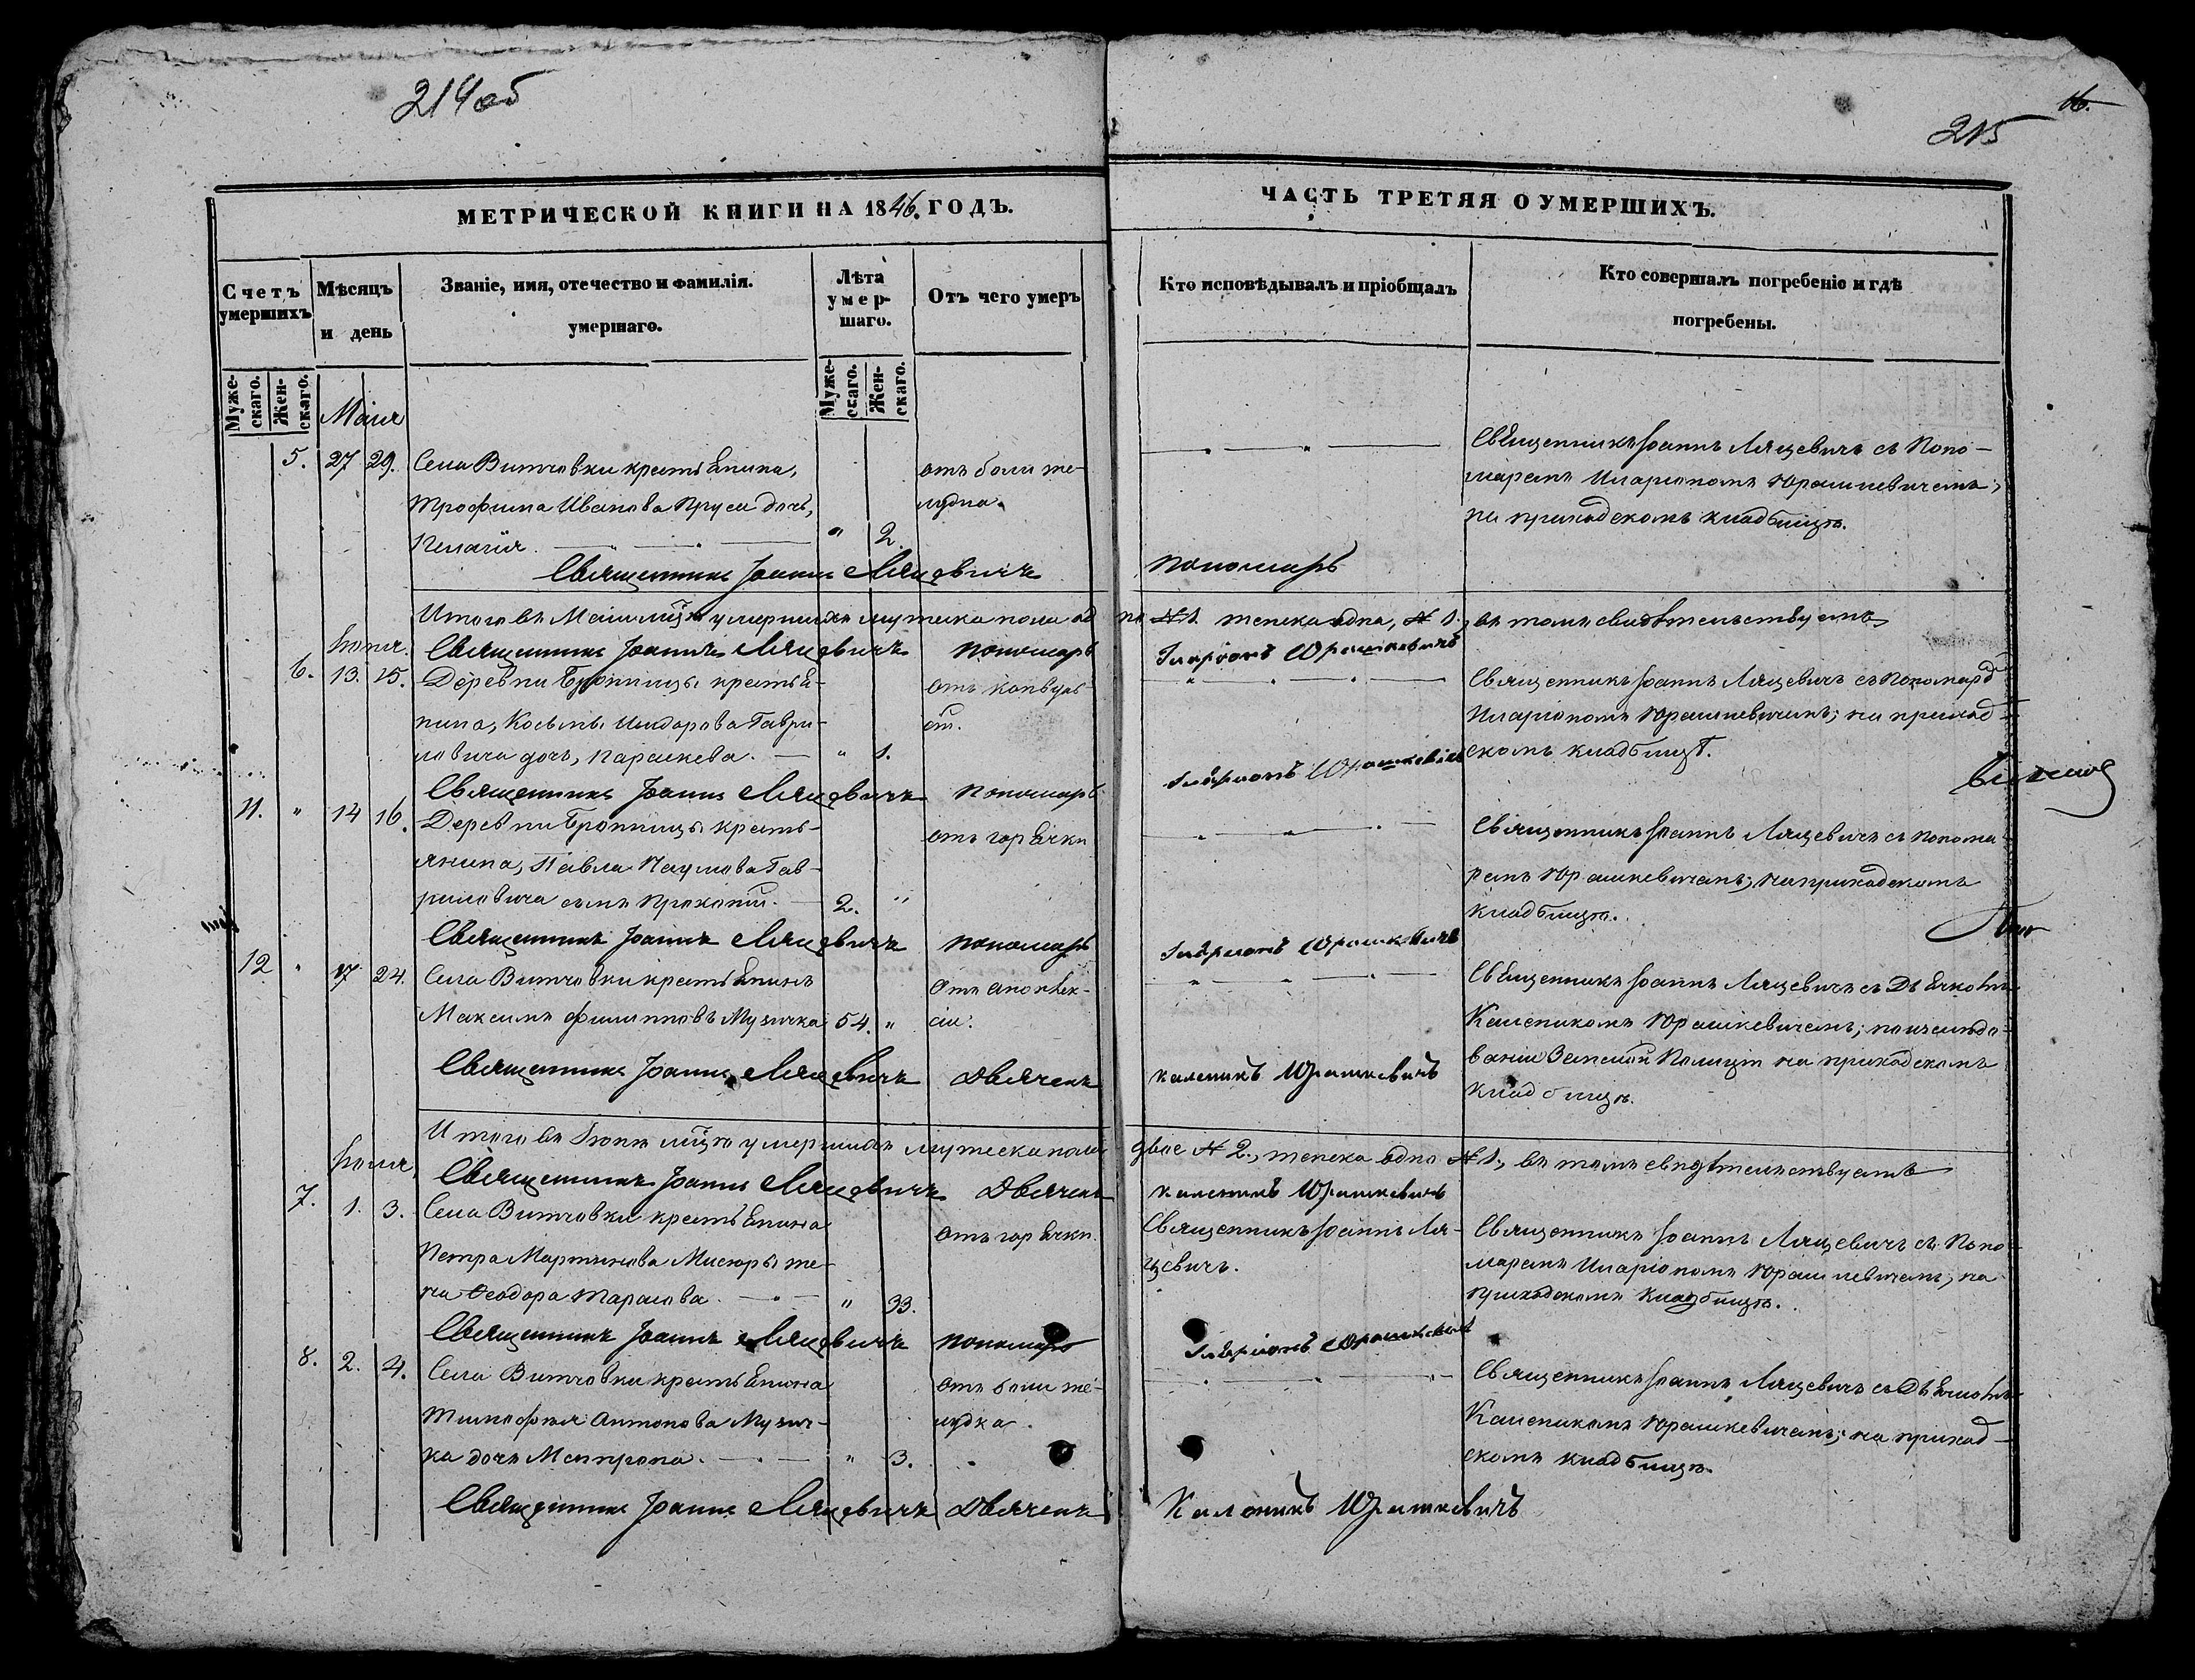 214 об
16.
215
МЕТРИЧЕСКОЙ КНИГИ НА 1846. ГОДЪ.
ЧАСТЬ ТРЕТЯЯ О УМЕРШИХЪ.
Счетъ умершихъ
Мѣсяцъ и день
Званіе, имя, отечество и фамилія. умершаго.
Лѣта умершаго.
Отъ чего умеръ
Кто исповѣдывалъ и пріобщалъ
Кто совершалъ погребеніе и гдѣ погребены.
Мужескаго.
Женскаго.
Мужескаго.
Женскаго.
Маія
5. 27 29. Села Витчовки крестьянина,
Трофима Иванова Пруса дочь,
Пелагія. " 2.
отъ боли же-
лудка.
Священникъ Іоаннъ Ляцевичъ съ Поно-
маремъ Иларіономъ Юрашкевичемъ;
на приходскомъ кладбищѣ.
Священникъ Іоаннъ Ляцевичъ
пономарь
Итого въ Маіи мцѣ умершихъ мужеска пола од
но № 1. женска одна, № 1., въ томъ свидѣтельствуемъ
Священникъ Іоаннъ Ляцевичъ пономарь Іларіонъ Юрашкевичъ
Іюня.
6. 13. 15. Деревни Бронницы крестья-
нина, Косьмы Исидорова Гаври-
ловича дочь, Параскева. " 1.
отъ конвуль-
сій.
Священникъ Іоаннъ Ляцевичъ съ пономар
Иларіономъ Юрашкевичемъ; на приход-
скомъ кладбищѣ.
Священникъ Іоаннъ Ляцевичъ пономарь Іларіонъ Юрашкевичъ
11. " 14 16. Деревни Бронницы кресть-
янина, Павла Наумова Гав-
риловича сынъ Прокопій. 2. "
отъ горячки
Священникъ Іоаннъ Ляцевичъ съ понома-
ремъ Юрашкевичемъ; на приходскомъ
кладбищѣ.
Священникъ Іоаннъ Ляцевичъ пономарь Іларіонъ Юрашкевичъ
12 " 17 24. Села Витчовки крестьянинъ
Максимъ Филипповъ Музычка 54. "
отъ апоплек-
сіи.
Священникъ Іоаннъ Ляцевичъ съ Дьячкомъ
Калеником Юрашкевичемъ; по изслѣдо-
ваніи Земской Полиціи на приходскомъ
кладбищѣ.
Священникъ Іоаннъ Ляцевичъ Дьячекъ Каленикъ Юрашкевичъ
Итого въ Іюнѣ мцѣ умершихъ мужеска пола
двое № 2., женска одна № 1., въ томъ свидѣтельствуемъ
Священникъ Іоаннъ Ляцевичъ Дьячекъ Каленикъ Юрашкевичъ
7. 1. 3. Села Витчовки крестьянина
Петра Мартинова Мисюры же-
на Феодора Тарасова. " 33.
отъ горячки.
Священникъ Іоаннъ Ля-
цевичъ.
Священникъ Іоаннъ Ляцевичъ съ Поно-
маремъ Иларіономъ Юрашкевичемъ, на
приходскомъ кладбищѣ.
Священникъ Іоаннъ Ляцевичъ пономарь Іларіонъ Юрашкевичъ
8. 2. 4. Села Витчовки крестьянина
Тимофея Антонова Музыч-
ка дочь Матрона. " 3.
отъ боли же-
лудка.
Священникъ Іоаннъ Ляцевичъ съ Дьячкомъ
Каленикомъ Юрашкевичемъ; на приход-
скомъ кладбищѣ.
Священникъ Іоаннъ Ляцевичъ Дьячекъ Каленикъ Юрашкевичъ